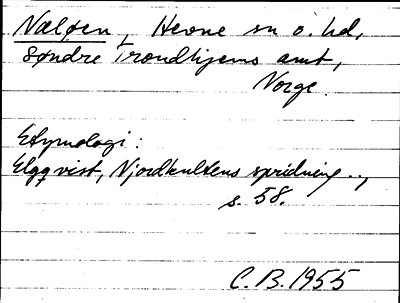 Næløen, Hevne sn o. hd,
Søndre Trondhjems amt,
Norge.
Etymologi:
Elgqvist, Njordkultens spridning ..,
s. 58.
C.B. 1955